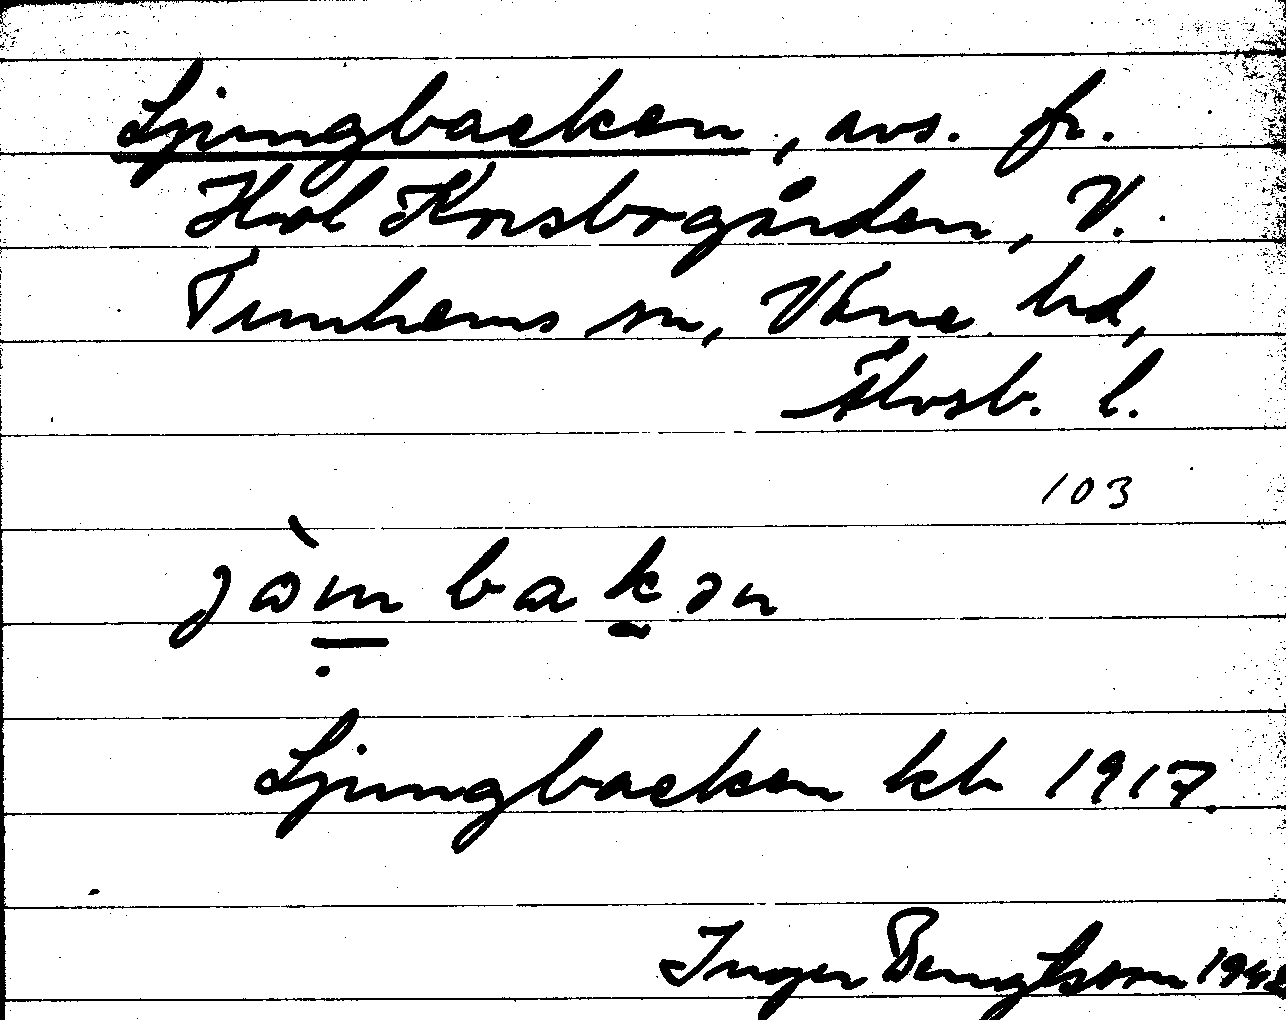 Ljungbacken, avs. fr.
Hol Korsbogården, V.
Tunhems sn, Väne hd,
Älvsb. l.
103
Ljungbacken kb 1917.
Inger Bengtsson